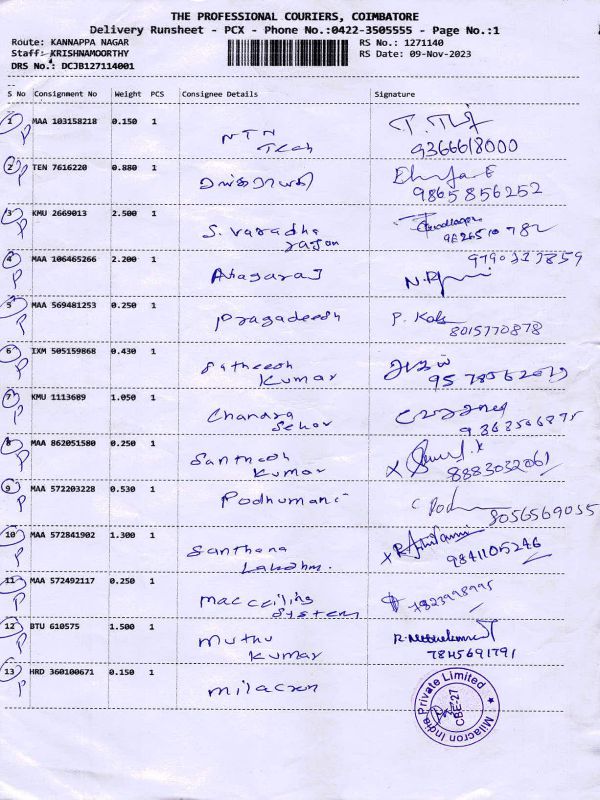 THE PROFESSIONAL COURIERS, COIMBATORE
Delivery Runsheet - PCX - Phone No.:0422-3505555 - Page No.:1
Route: KANNAPPA NAGAR RS No.: 1271140
Staff: KRISHNAMOORTHY RS Date: 09-Nov-2023
DRS No.: DCJB127114001
S No Consignment No Weight PCS Consignee Details Signature
1 MAA 103158218 0.150 1 NTN Tech
P 9366618000
2 TEN 7616220 0.880 1
P 9865856252
3 KMU 2669013 2.500 1 S. Varadha
P rajan
4 MAA 106465266 2.200 1 Alagaraj
P
5 MAA 569481253 0.250 1 Pragadeesh
P 8015770878
6 IXM 505159868 0.430 1 Satheesh
P Kumar
7 KMU 1113689 1.050 1 Chandra
P Sekar
8 MAA 862051580 0.250 1 Santhosh
P Kumar 8883032061
9 MAA 572203228 0.530 1 Podhumani
P 8056569055
10 MAA 572841902 1.300 1 Santhana
P Lakshmi 9841105246
11 MAA 572492117 0.250 1 Mac Ceiling
P System
12 BTU 610575 1.500 1 Muthu
P Kumar 7845691791
13 HRD 360100671 0.150 1 Milacron
P
Milacron India Private Limited
CBE-27